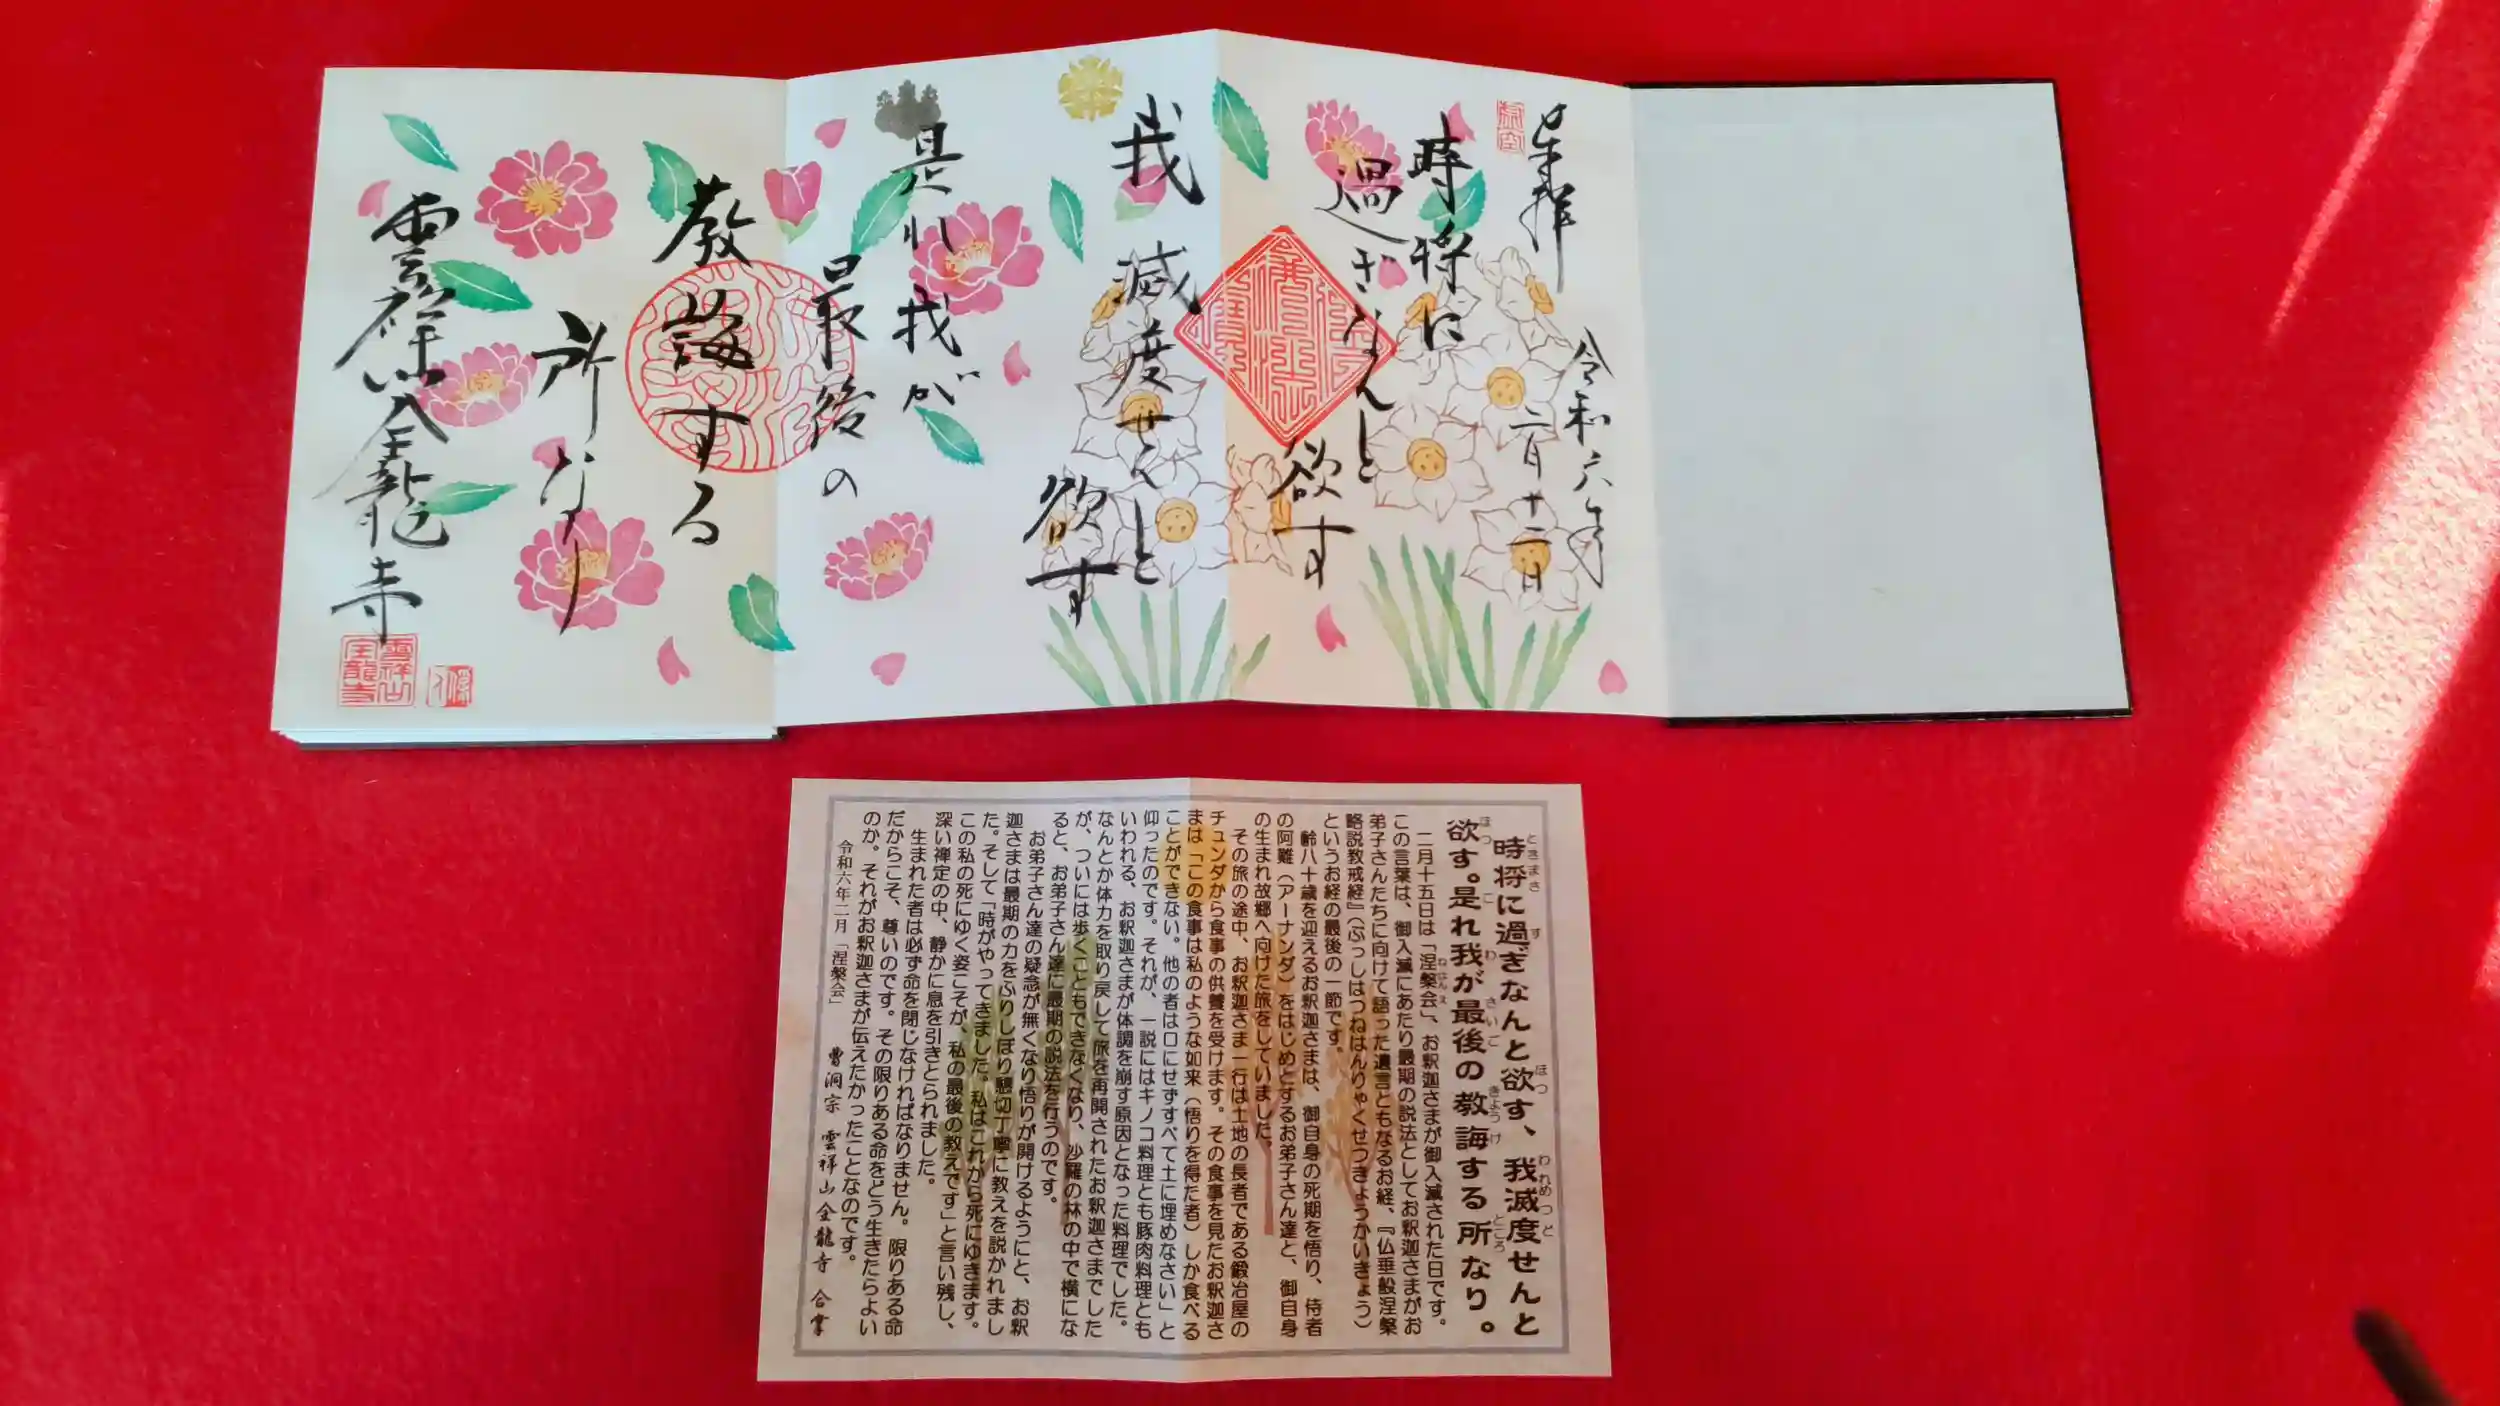 奉拝
令和六年
二月十二日
時将に
過ぎなんと
欲す
我 滅度せんと
欲す
是れ我が
最後の
教誨する
所なり
雲祥山全龍寺
雲祥山
全龍寺
時将に過ぎなんと欲す、我滅度せんと
欲す。是れ我が最後の教誨する所なり。
二月十五日は「涅槃会」、お釈迦さまが御入滅された日です。
この言葉は、御入滅にあたり最期の説法としてお釈迦さまがお
弟子さんたちに向けて語った遺言ともなるお経、『仏垂般涅槃
略説教戒経』(ぶっしはつねはんりゃくせつきょうかいきょう)
というお経の最後の一節です。
齢八十歳を迎えるお釈迦さまは、御自身の死期を悟り、侍者
の阿難(アーナンダ)をはじめとするお弟子さん達と、御自身
の生まれ故郷へ向けた旅をしていました。
その旅の途中、お釈迦さま一行は土地の長者である鍛冶屋の
チュンダから食事の供養を受けます。その食事を見たお釈迦さ
まは「この食事は私のような如来(悟りを得た者)しか食べる
ことができない。他の者は口にせずすべて土に埋めなさい」と
仰ったのです。それが、一説にはキノコ料理とも豚肉料理とも
いわれる、お釈迦さまが体調を崩す原因となった料理でした。
なんとか体力を取り戻して旅を再開されたお釈迦さまでした
が、ついには歩くこともできなくなり、沙羅の林の中で横にな
ると、お弟子さん達に最期の説法を行うのです。
お弟子さん達の疑念が無くなり悟りが開けるようにと、お釈
迦さまは最期の力をふりしぼり懇切丁寧に教えを説かれまし
た。そして「時がやってきました。私はこれから死にゆきます。
この私の死にゆく姿こそが、私の最後の教えです」と言い残し、
深い禅定の中、静かに息を引きとられました。
生まれた者は必ず命を閉じなければなりません。限りある命
だからこそ、尊いのです。その限りある命をどう生きたらよい
のか。それがお釈迦さまが伝えたかったことなのです。
令和六年二月「涅槃会」 曹洞宗 雲祥山全龍寺 合掌